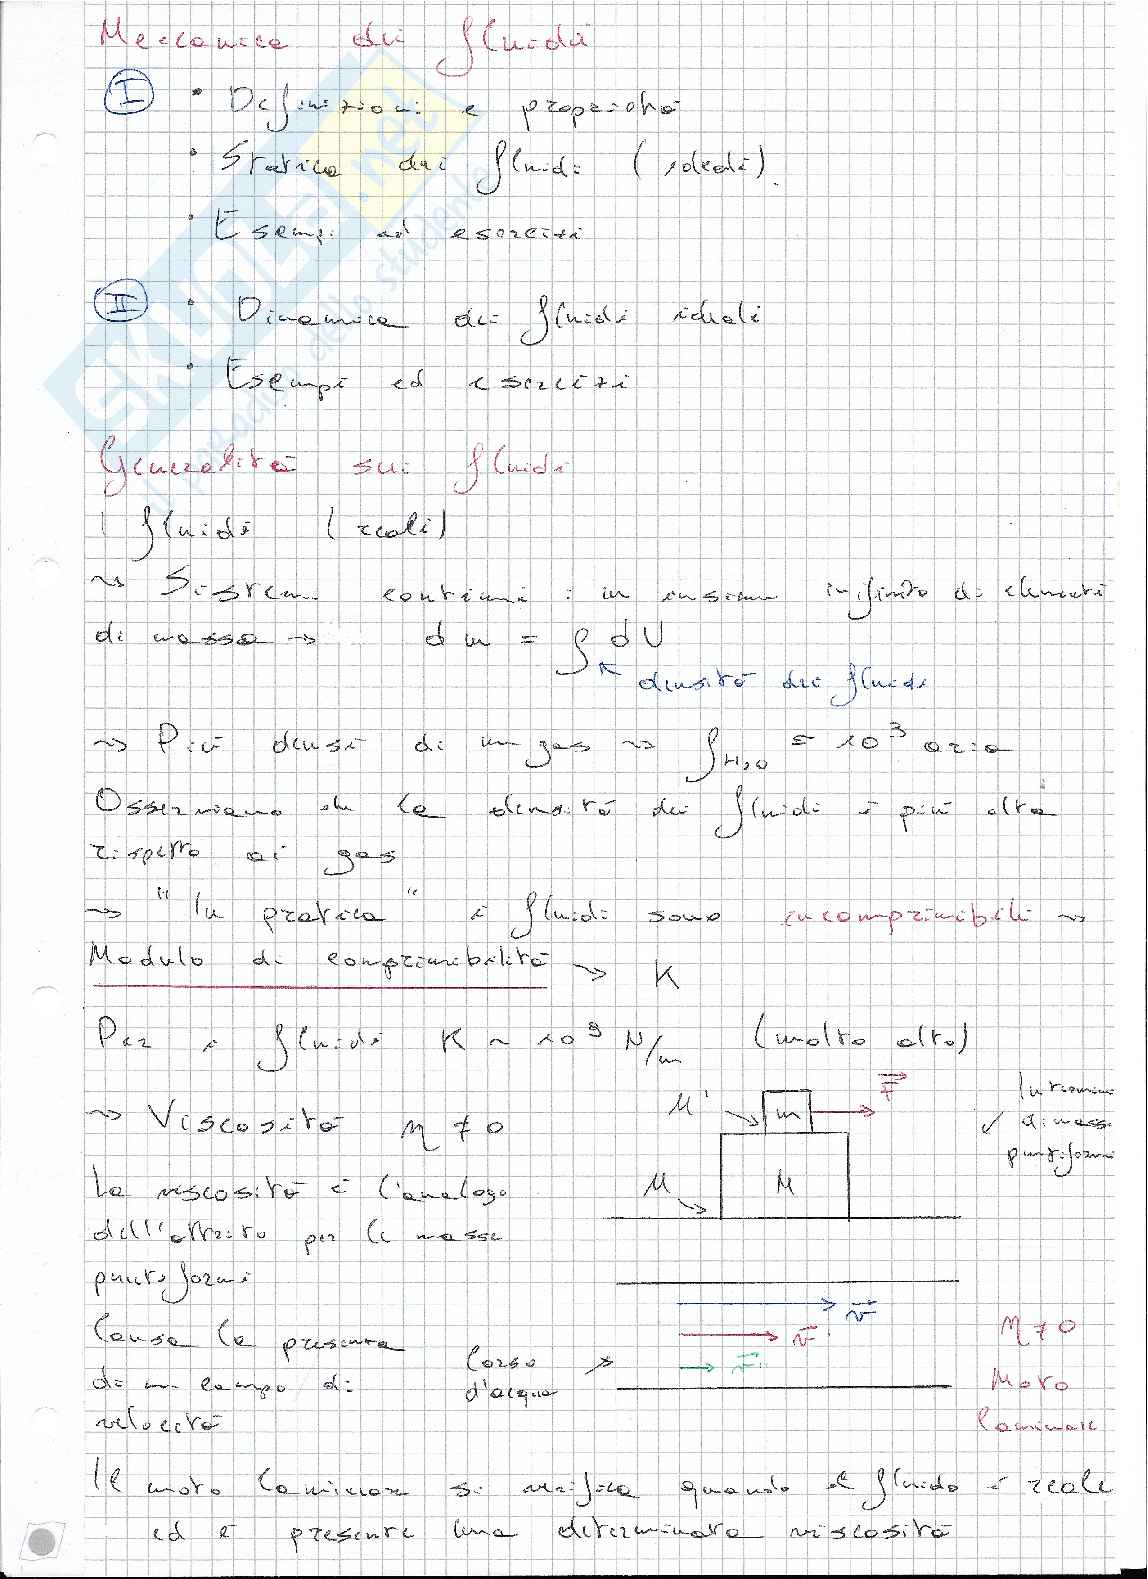 Meccanica dei fluidi
I • Definizioni e proprietà
• Statica dei fluidi (ideali).
• Esempi ed esercizi
II • Dinamica dei fluidi ideali
• Esempi ed esercizi
Generalità sui fluidi
I fluidi (reali)
~> Sistemi continui : un insieme infinito di elementi
di massa → dm = ρ dV
densità dei fluidi
~> Più densi di un gas ~> ρH2O = 10³ aria
Osserviamo che la densità dei fluidi è più alta
rispetto ai gas
~> "In pratica" i fluidi sono incomprimibili ~>
Modulo di comprimibilità ~> K
Per i fluidi K ~ 10⁹ N/m (molto alto)
~> Viscosità η ≠ 0
μ' m F
In termini
di masse
puntiformi
μ M
La viscosità è l'analogo
dell'attrito per le masse
puntiformi
Causa la presenza
di un campo di
velocità
Corso
d'acqua
v
v'
v''
η ≠ 0
Moto
laminare
Il moto laminare si verifica quando il fluido è reale
ed è presente una determinata viscosità
SKUOLA.net
il paradiso dello studente